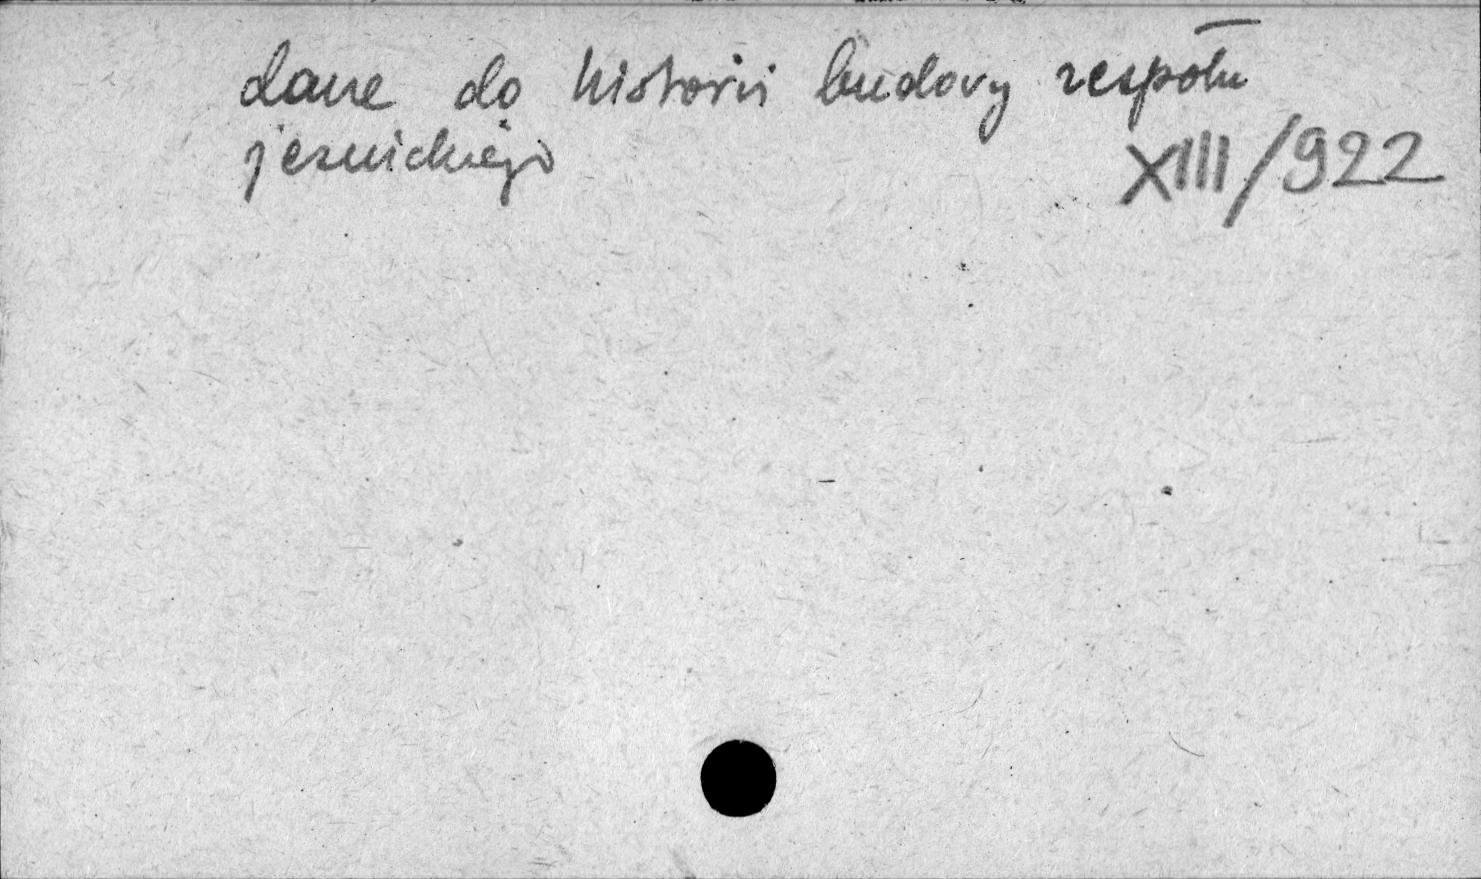 dane do historii budowy zespołu
jezuickiego
XIII/922